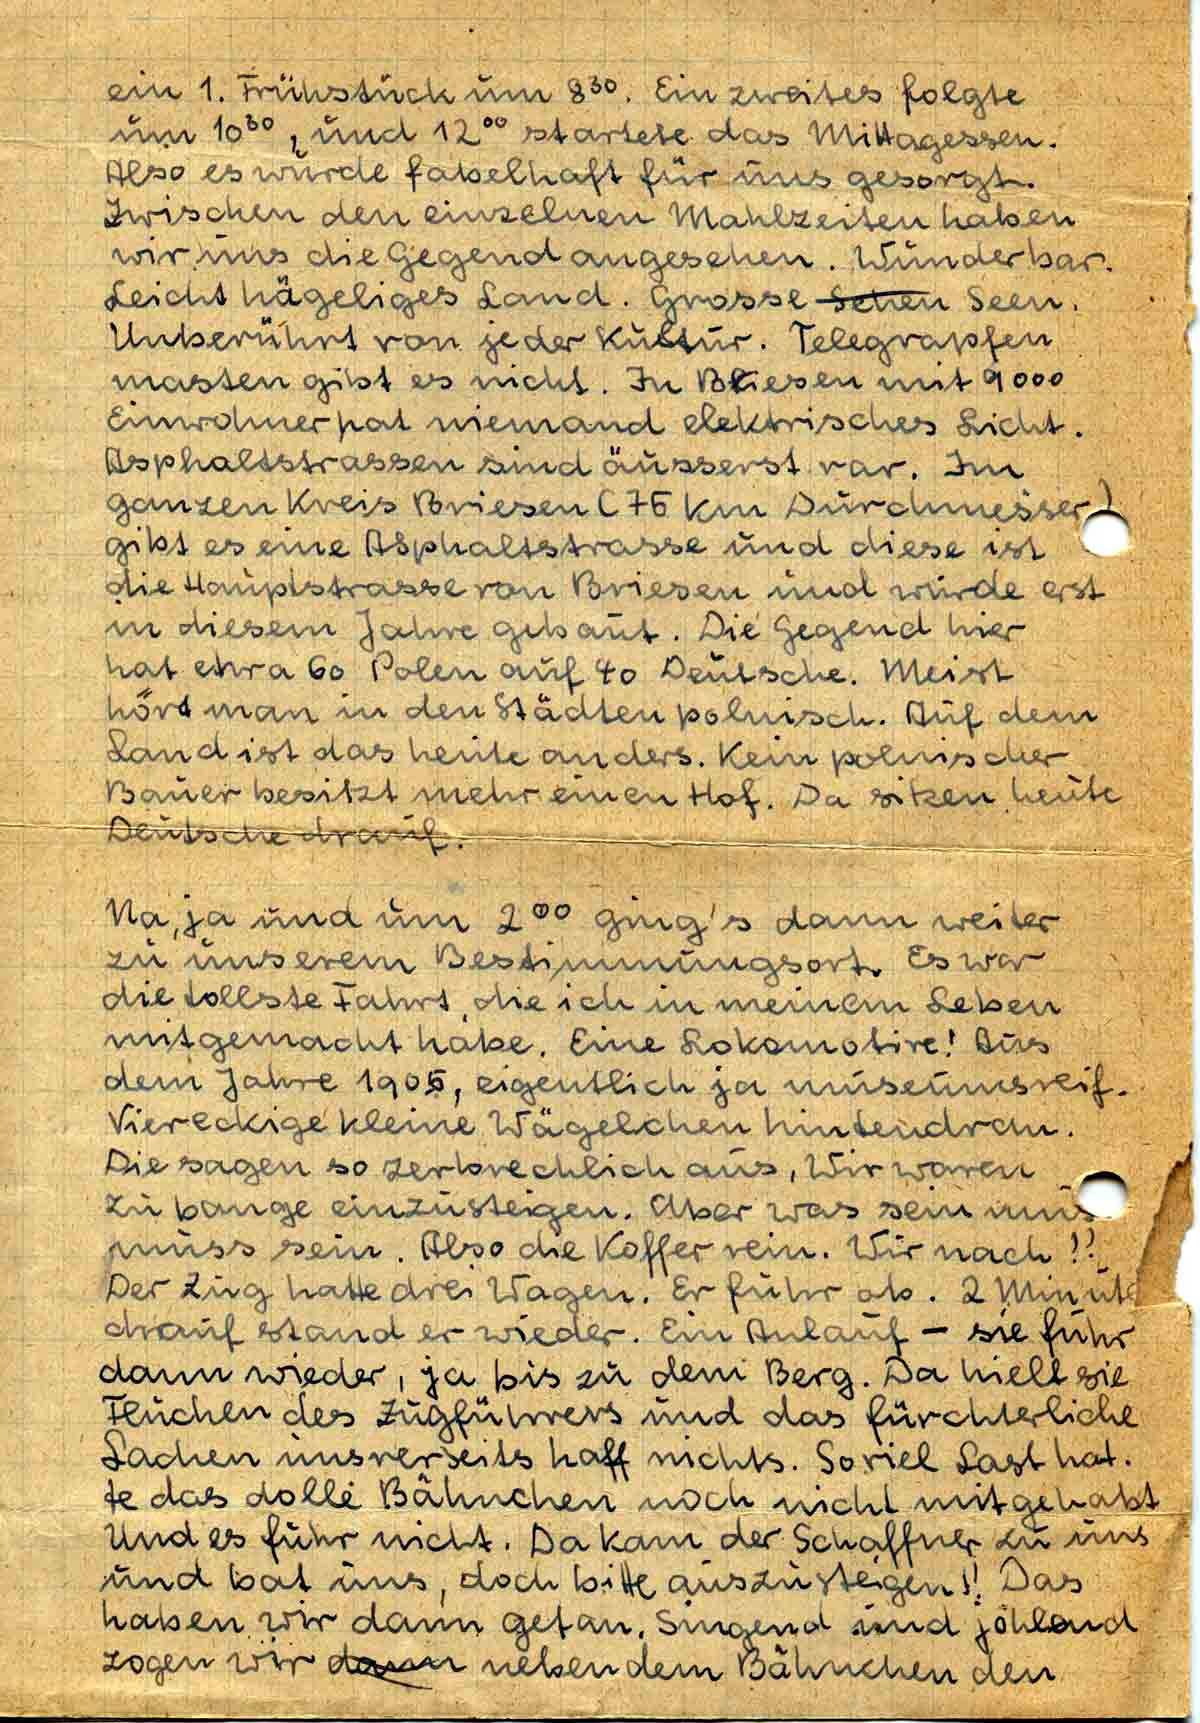 ein 1. Frühstück um 8³⁰. Ein zweites folgte
um 10³⁰, und 12⁰⁰ startete das Mittagessen.
Also es wurde fabelhaft für uns gesorgt.
Zwischen den einzelnen Mahlzeiten haben
wir uns die Gegend angesehen. Wunderbar.
Leicht hügeliges Land. Grosse Sehen Seen.
Unberührt von jeder Kultur. Telegrapfen
masten gibt es nicht. In Briesen mit 9000
Einwohner hat niemand elektrisches Licht.
Asphaltstrassen sind äusserst rar. Im
ganzen Kreis Briesen (75 km Durchmesser)
gibt es eine Asphaltstrasse und diese ist
die Hauptstrasse von Briesen und wurde erst
in diesem Jahre gebaut. Die Gegend hier
hat etwa 60 Polen auf 40 Deutsche. Meist
hört man in den Städten polnisch. Auf dem
Land ist das heute anders. Kein polnischer
Bauer besitzt mehr einen Hof. Da sitzen heute
Deutsche drauf.
Na, ja und um 2⁰⁰ ging's dann weiter
zu unserem Bestimmungsort. Es war
die tollste Fahrt, die ich in meinem Leben
mitgemacht habe. Eine Lokomotive! Aus
dem Jahre 1905, eigentlich ja museumsreif.
Viereckige kleine Wägelchen hintendran.
Die sagen so zerbrechlich aus, Wir waren
zu bange einzusteigen. Aber was sein mus
muss sein. Also die Koffer rein. Wir nach!!
Der Zug hatte drei Wagen. Er fuhr ab. 2 Minute
drauf stand er wieder. Ein Anlauf – sie fuhr
dann wieder, ja bis zu dem Berg. Da hielt sie
Fluchen des Zugführers und das fürchterliche
Lachen unsrerseits half nichts. Soviel Last hat-
te das dolle Bähnchen noch nicht mitgehabt
Und es fuhr nicht. Da kam der Schaffner zu uns
und bat uns, doch bitte auszusteigen!! Das
haben wir dann getan. Singend und johlend
zogen wir dann neben dem Bähnchen den